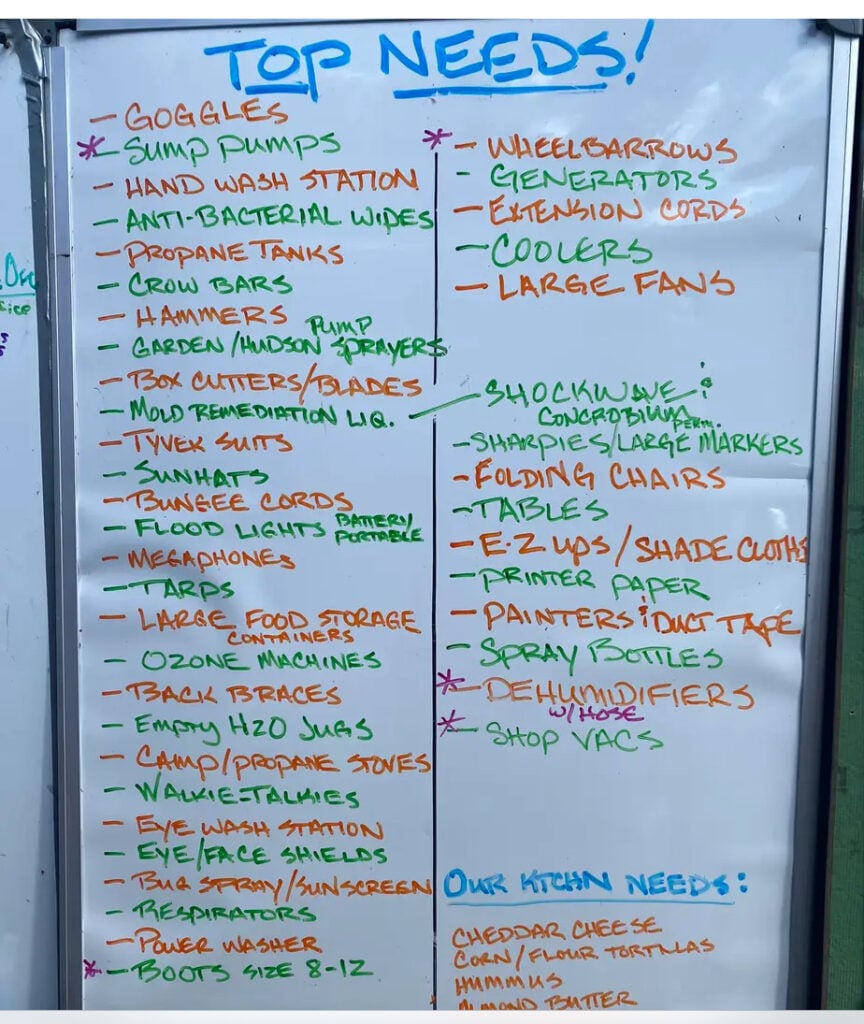 TOP NEEDS!
- GOGGLES
* - SUMP PUMPS
- HAND WASH STATION
- ANTI-BACTERIAL WIPES
- PROPANE TANKS
- CROW BARS
- HAMMERS
- GARDEN/HUDSON PUMP SPRAYERS
- BOX CUTTERS/BLADES
- MOLD REMEDIATION LIQ. — SHOCKWAVE & CONCROBIUM
- TYVEK SUITS
- SUNHATS
- BUNGEE CORDS
- FLOOD LIGHTS BATTERY/PORTABLE
- MEGAPHONES
- TARPS
- LARGE FOOD STORAGE
CONTAINERS
- OZONE MACHINES
- BACK BRACES
- EMPTY H2O JUGS
- CAMP/PROPANE STOVES
- WALKIE-TALKIES
- EYE WASH STATION
- EYE/FACE SHIELDS
- BUG SPRAY/SUNSCREEN
- RESPIRATORS
- POWER WASHER
* - BOOTS SIZE 8-12
* - WHEELBARROWS
- GENERATORS
- EXTENSION CORDS
- COOLERS
- LARGE FANS
- SHARPIES/LARGE PERM. MARKERS
- FOLDING CHAIRS
- TABLES
- E-Z UPS/SHADE CLOTHS
- PRINTER PAPER
- PAINTERS & DUCT TAPE
- SPRAY BOTTLES
* - DEHUMIDIFIERS
W/HOSE
* - SHOP VACS
OUR KTCHN NEEDS:
CHEDDAR CHEESE
CORN/FLOUR TORTILLAS
HUMMUS
ALMOND BUTTER